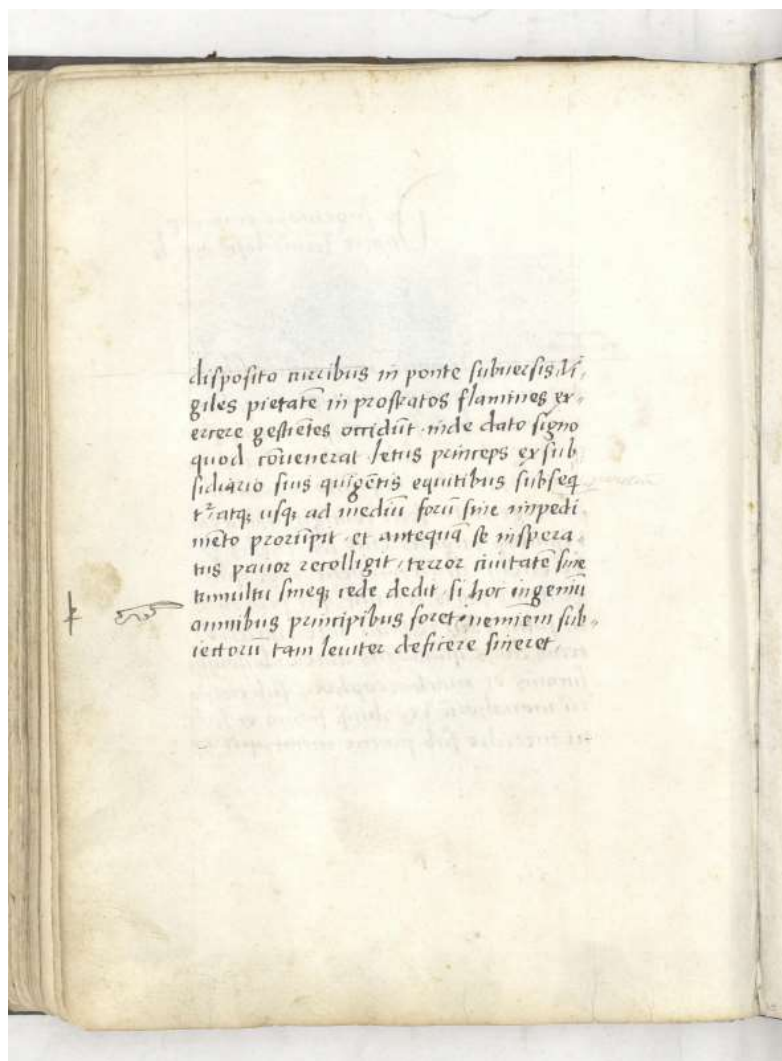 disposito curribus in ponte subversis, vi-
giles pietatē in prostratos flamines ex-
ercere gestiētes occidūt. inde dato signo
quod cōvenerat letus princeps ex sub
sidiario suis quigētis equitibus subseq
tᷣ atqȝ usqȝ ad mediū forū sine impedi
mēto prorūpit. et antequā se inspera-
tus pavor recolligit, terror civitatē sine
tumultu sineqȝ cede dedit. si hoc ingeniū
omnibus principibus foret. neminem sub-
iectorū tam leviter deficere sineret.